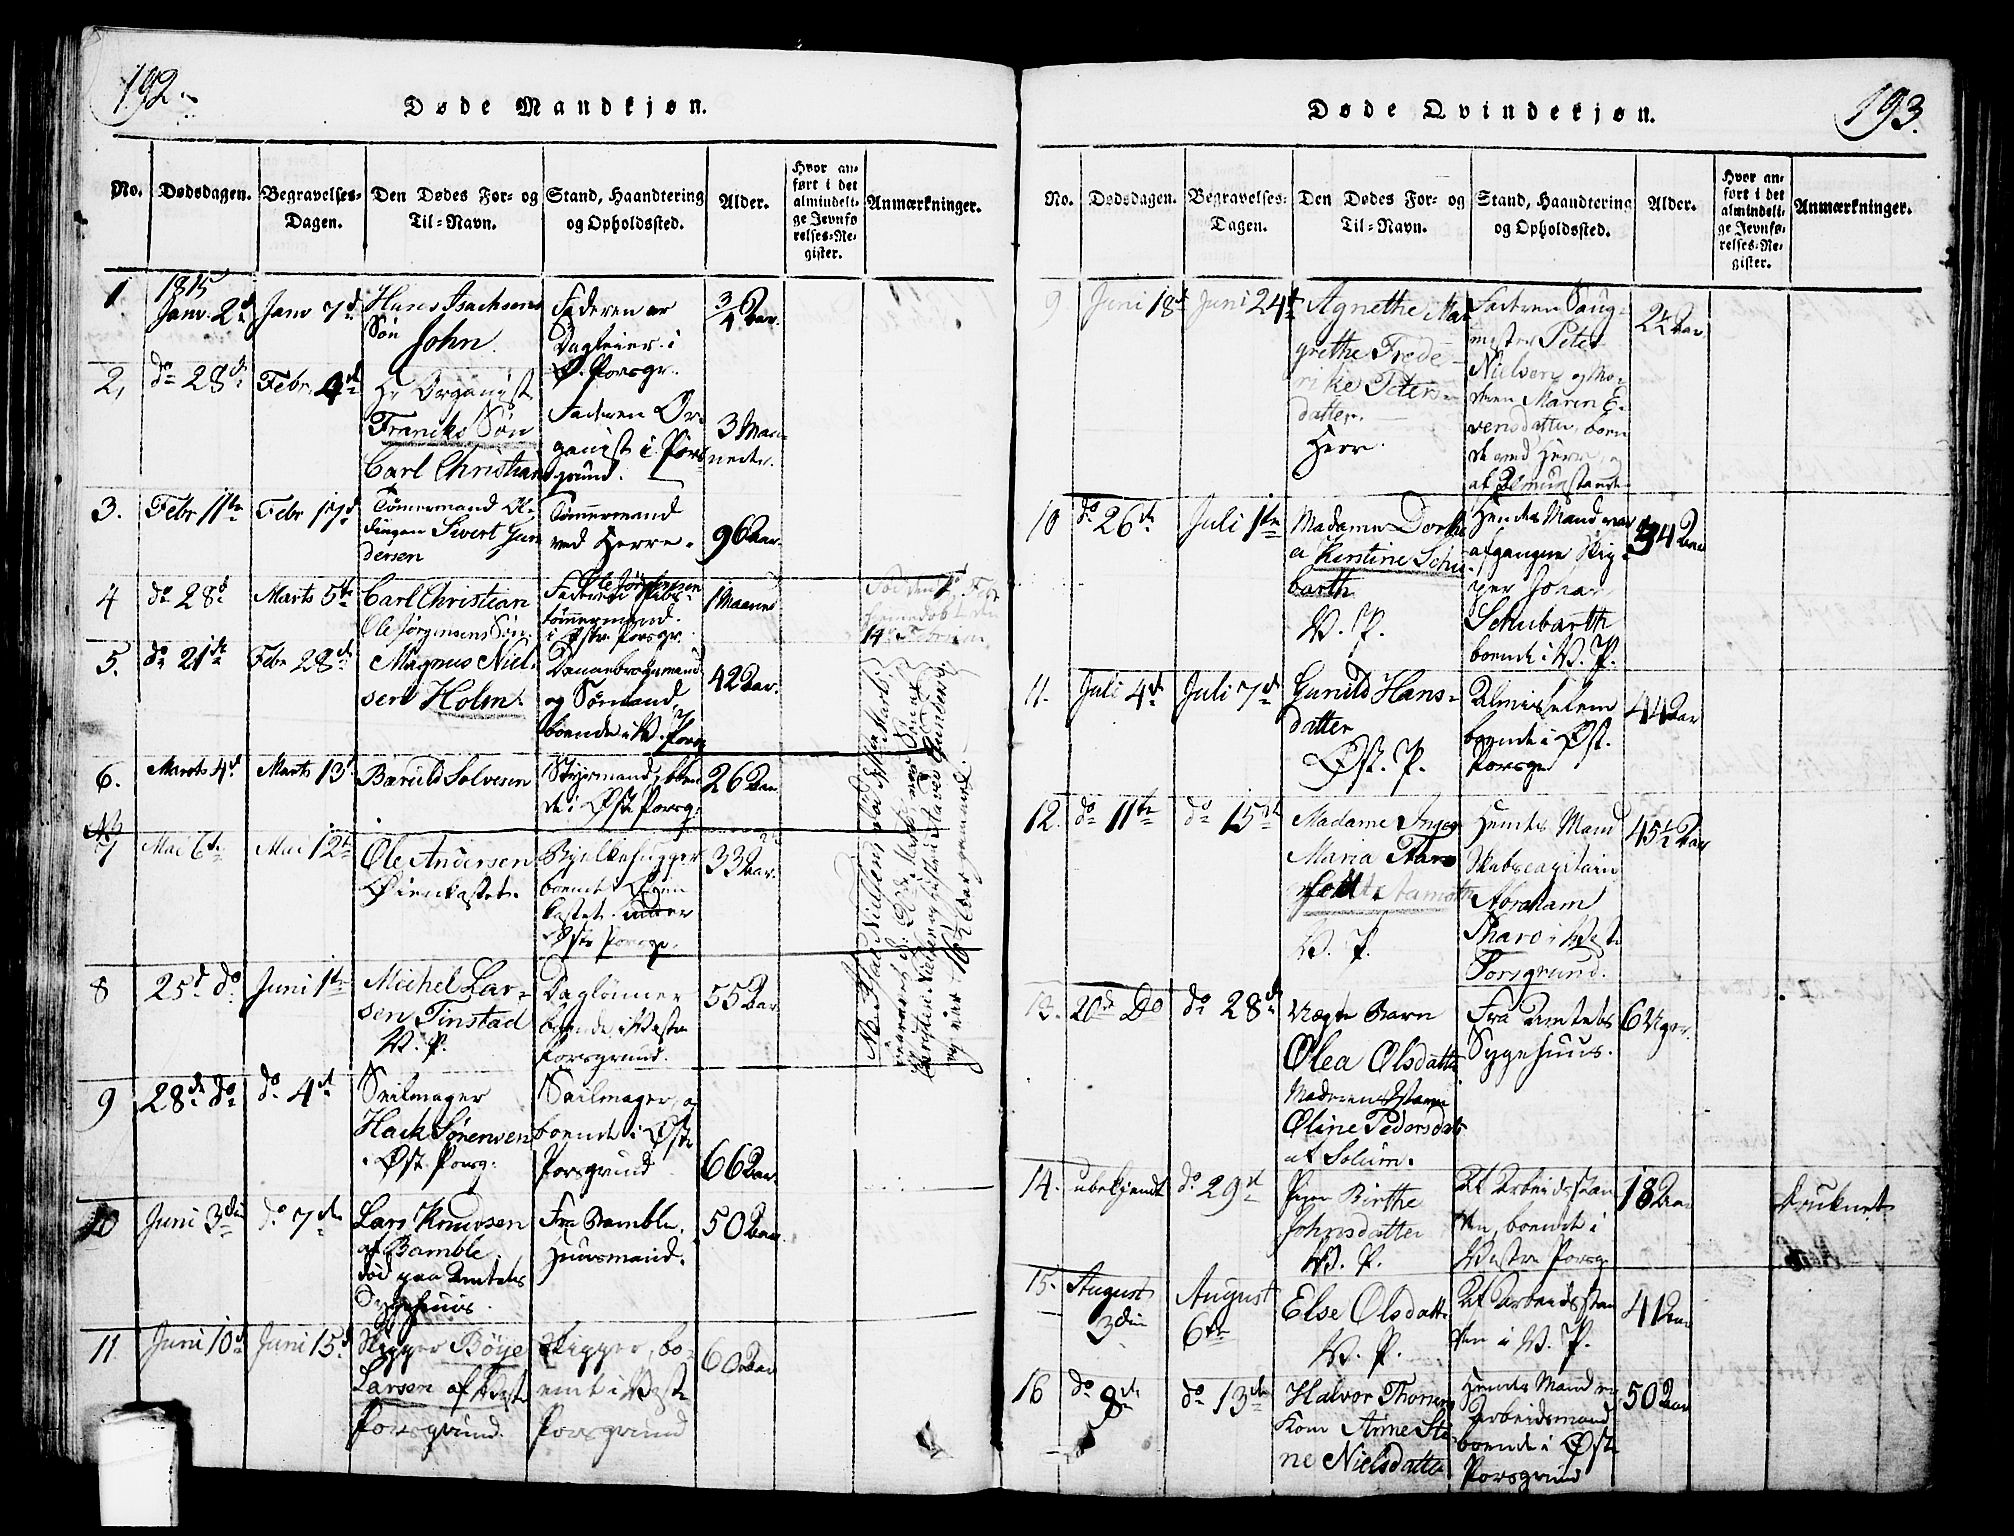 192.
Døde Mandkjøn.
No.
Dødsdagen.
Begravelses-
Dagen.
Den Dødes For- og
Til-Navn.
Stand, Haandtering
og Opholdssted.
Alder.
Hvor an-
ført i det
almindeli-
ge Jevnfø
relses-Re-
gister.
Anmærkninger.
1
1815
Janv. 2d
Janv 7d
Hans Isachsens
Søn
John.
Faderen er
Dagleier i
Ø. Porsgr.
3/4 Aar.
2,
do 28d
Febr. 4d
Hr Organist
Francks Søn
Carl Christian
Faderen Or-
ganist i Pors-
grund.
3 Maa-
neder.
3.
Febr 11te
Febr 17d
Tømmermand
Sivert Gun
dersen
Tømmermand
ved Herre.
96 Aar.
4
do 28d
Marts 5te
Carl Christian
Ole Jørgensens Søn.
Faderen Ole Jørgensen
tømmermand.
i Østr. Porsgr.
1 Maaned
14de Februar
5.
do 21de
Febr 28d
Magnus Niel-
sen Holm.
Dannebrogsmand
og Sømand,
boende i V. Porsg
42 Aar.
6.
Marts 4d
Marts 13d
Baruld Solvesen
Styrmand, boen
de i Øst Porsg.
26 Aar
7
Mai 6te
Mai 12te
Ole Andersen
Øienkastet.
Bielkehugger
boende i Øien
kastet under
Østr Porsgr.
33 Aar.
8
25d do
Juni 1te
Michel Lar-
sen Tinstad
V. P.
Dagleiner
boende i Vestre
Porsgrund.
55 Aar
9
28de do
do 4d
Seilmager
Hack Sørensen
Øst. Porsg:
Seilmager,
boende i Østr
Porsgrund
66 Aar.
10
Juni 3die
do 7de
Lars Knudsen
af Bamble.
død paa Amtets
Sygehuus.
Fra Bamble,
Huusmand.
50 Aar.
11
Juni 10d
Juni 15d
Skipper Böye
Larsen af Vestr
Porsgrund.
Skipper, bo-
ende i Vestr
Porsgrund
60 Aar
193.
Døde Qvindekjøn.
No.
Dødsdagen.
Begravelses-
Dagen.
Den Dødes For- og
Til-Navn.
Stand, Haandtering
og Opholdssted.
Alder.
Hvor an-
ført i det
almindeli-
ge Jevnfø-
relses-Re-
gister.
Anmærkninger.
9
Juni 18d
Juni 24d
Agnethe Mar
grethe Frede-
rike Peters-
datter.
Herre.
Faderen Saug-
mester Peter
Nielsen og Mo-
deren Maren E-
vensdatter, boen
de ved Herre,
af Almuestanden
2½ Aar
10
do 26de
Juli 1te
Madame Dorthe
a Kirstine Schu-
barth
V. P.
Hendes Mand var
afgangne Skip-
per Jonas
Schubarth
boende i V. P.
34 Aar
11.
Juli 4d
Juli 7d
Gunild Hans-
datter
Øst. P.
Almisselem
boende i Øst.
Porsgr
44 Aar
12.
do 11te
do 15de
Madame Inger
Maria
V. P.
Hendes Mand
Skibscapitain
Abraham
Tharo i Vestr
Porsgrund.
45½ Aar
13.
20de Do
do 28de
Uægte Barn
Ølea Olsdatter
Moderens Navn
Oline Pedersdatter
af Solum.
Fra Amtets
Sygehuus.
6 Uger.
14.
ubekjendt
do 29d
Pige Birthe
Johnsdatter
V. P.
Af Arbeidsstan
den, boende i
Vestre Porsg.
18 Aar
Druknet
15.
August
3die
August
6te
Else Olsdatter
V. P.
Af Arbeidsstan
den i V. P.
41 Aar
16
do 8de
do 13de
Halvor Thorsens
Kone Anne Sti-
ne Nielsdatter
Hendes Mand er
Arbeidsmand
boende i Østr
Porsgrund
50 Aar